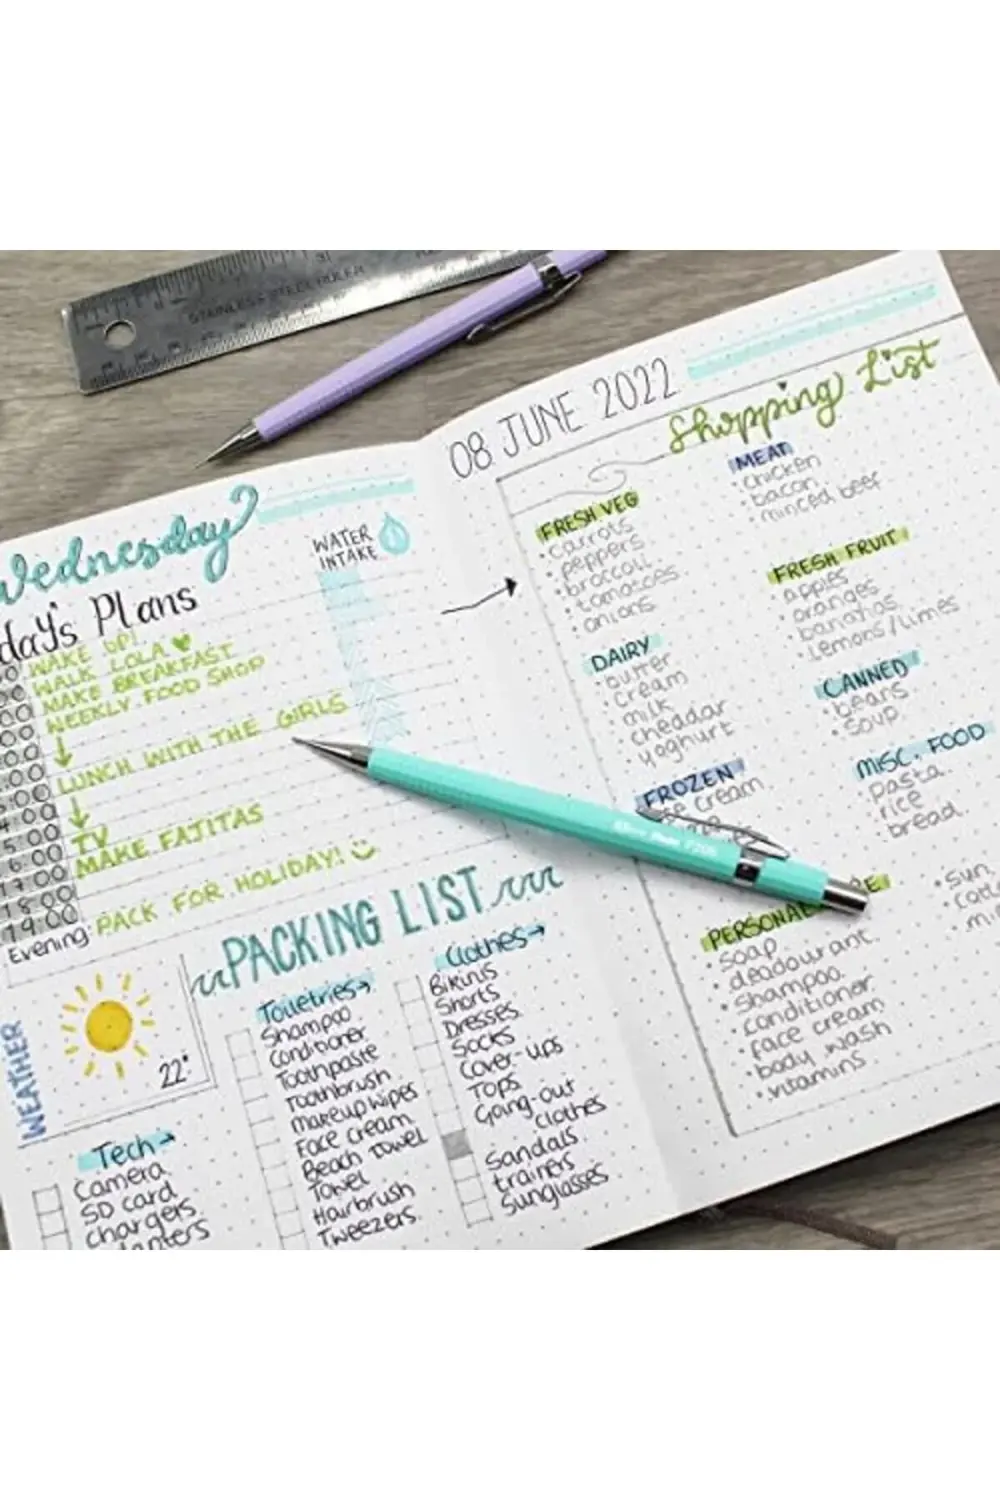 STAINLESS STEEL RULER
Wednesday
day's Plans
WAKE UP!
WALK LOLA
MAKE BREAKFAST
WEEKLY FOOD SHOP
LUNCH WITH THE GIRLS
TV
MAKE FAJITAS
18:00
19:00
Evening: PACK FOR HOLIDAY!
WATER
INTAKE
WEATHER
22°
PACKING LIST
Tech
Camera
SD card
chargers
Toiletries
Shampoo
Conditioner
Toothpaste
Toothbrush
Makeup wipes
Face cream
Beach Towel
Towel
Hairbrush
Tweezers
Clothes
Bikinis
Shorts
Dresses
Socks
Cover-ups
Tops
Going-out
clothes
Sandals
trainers
Sunglasses
08 JUNE 2022
Shopping List
FRESH VEG
carrots
peppers
broccoli
tomatoes
onions
DAIRY
butter
cream
milk
cheddar
yoghurt
FROZEN
cream
MEAT
chicken
bacon
minced beef
FRESH FRUIT
apples
oranges
bananas
lemons/limes
CANNED
beans
soup
MISC. FOOD
pasta
rice
bread
PERSONAL
soap
deadourant
shampoo
conditioner
face cream
body wash
vitamins
sun